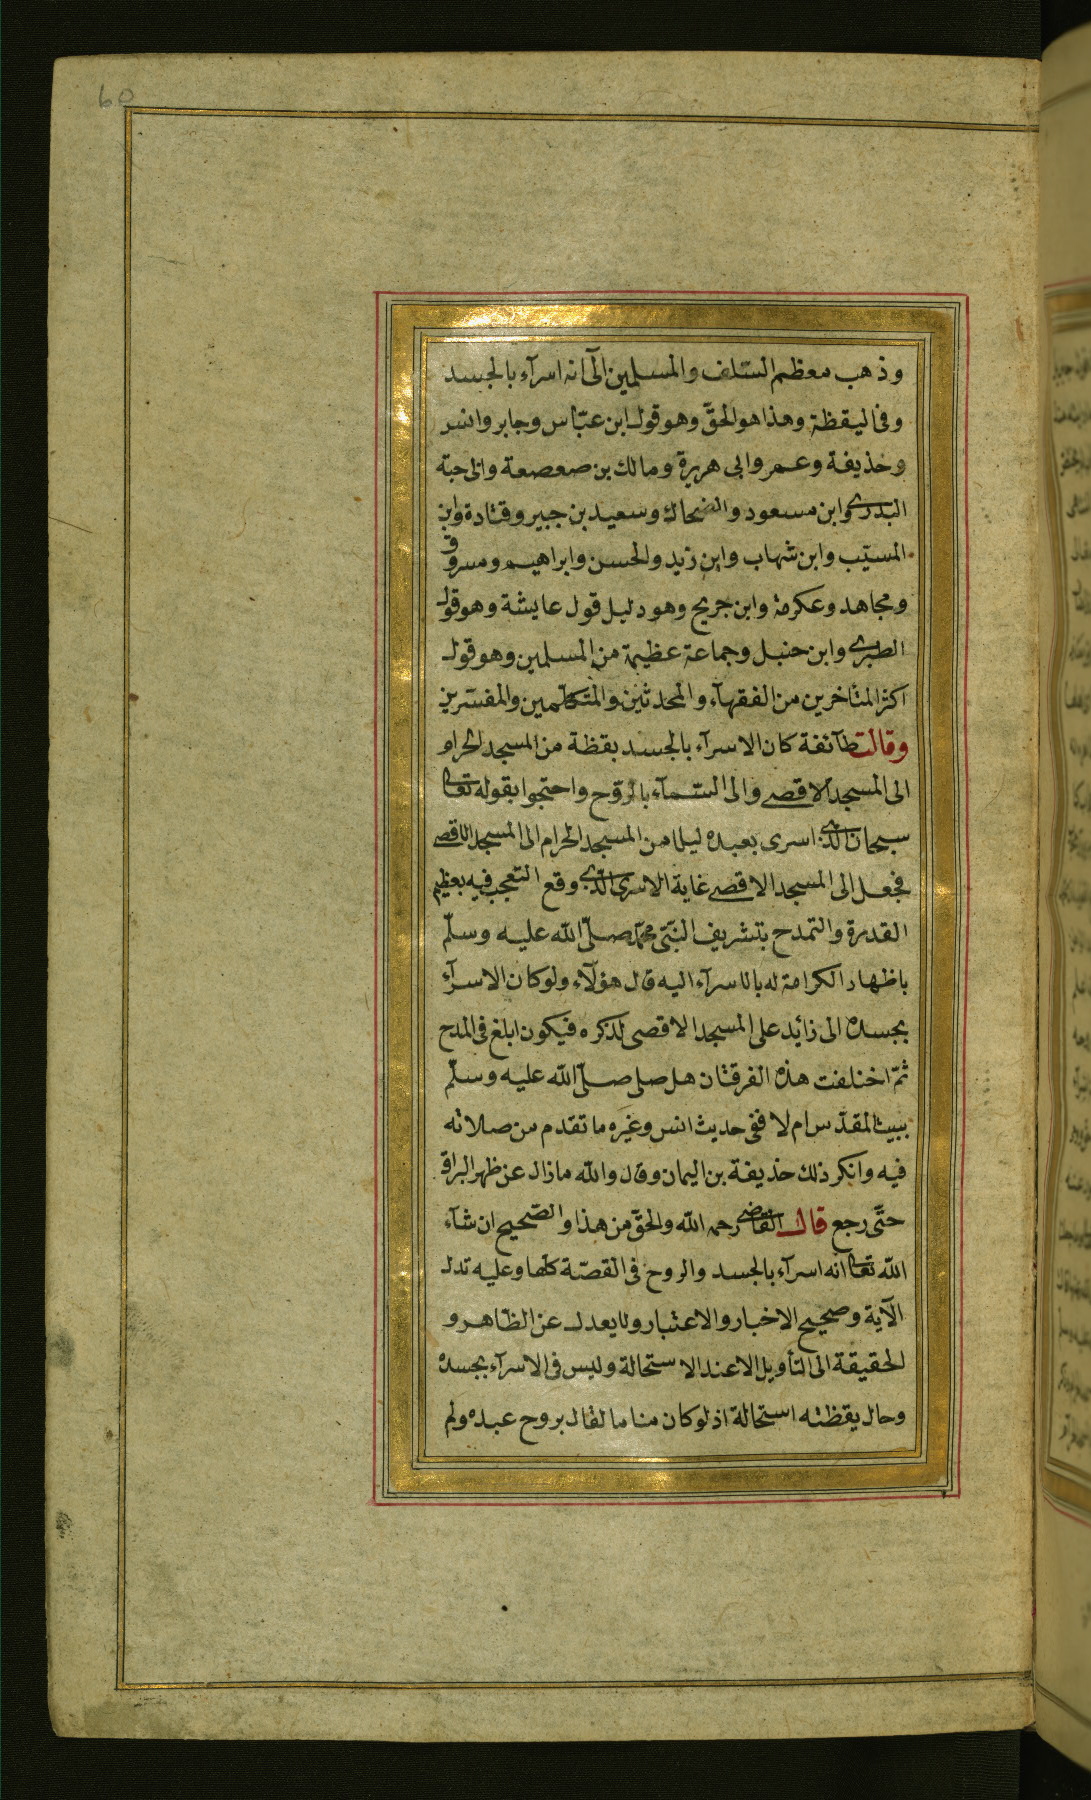 60
وذهب معظم السّلف والمسلمين الى آنه اسرآء بالجسد
وفى اليقظة وهذا هو الحقّ وهو قول ابن عبّاس وجابر وانس
وحذيفة وعمر وابى هريرة ومالك بن صعصعة وابى حبة
البدرى وابن مسعود والضحاك وسعيد بن جبير وقتادة وابن
المسيّب وابن شهاب وابن زيد والحسن وابراهيم ومسروق
ومجاهد وعكرمة وابن جريح وهو دليل قول عايشة وهو قول
الطبرى وابن حنبل وجماعة عظيمة من المسلمين وهو قول
اكثر المتاخرين من الفقهآء والمحدثين والمتكلّمين والمفسّرين
وقالت طآئفة كان الاسرآء بالجسد يقظة من المسجد الحرام
الى المسجد الاقصى والى السّمآء بالرّوح واحتجوا بقوله تعالى
سبحان الّذى اسرى بعبده ليلا من المسجد الحرام الى المسجد الاقصى
فجعل الى المسجد الاقصى غاية الاسرى الّذى وقع التعجب فيه بعظيم
القدرة والتمدح بتشريف النّبىّ محمّد صلّى اللّه عليه وسلّم
باظهار الكرامة له بالاسرآء اليه قال هؤلآء ولو كان الاسرآء
بجسده الى زآئد على المسجد الاقصى لذكره فيكون ابلغ فى المدح
ثمّ اختلفت هذه الفرقتان هل صلى صلّى اللّه عليه وسلّم
ببيت المقدّس ام لا ففى حديث انس وغيره ما تقدم من صلاته
فيه وانكر ذلك حذيفة بن اليمان وقال واللّه ما زال عن ظهر البراق
حتّى رجع قال القاضى رحمه اللّه والحقّ من هذا والصّحيح ان شآء
اللّه تعالى انه اسرآء بالجسد والروح فى القصّة كلّها وعليه تدل
الآية وصحيح الاخبار والاعتبار ولا يعدل عن الظّاهر و
الحقيقة الى التأويل الا عند الاستحالة وليس فى الاسرآء بجسده
وحال يقظته استحالة اذ لو كان مناما لقال بروح عبده ولم